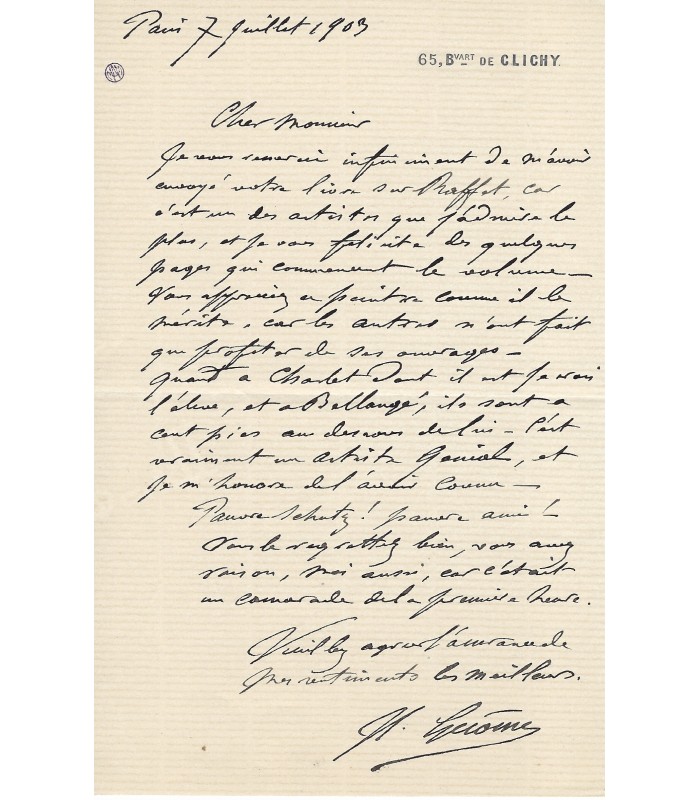 Paris 7 Juillet 1903
65, Bvart DE CLICHY.
Cher monsieur
Je vous remercie infiniment de m'avoir
envoyé votre livre sur Raffet, car
c'est un des artistes que j'admire le
plus, et je vous félicite des quelques
pages qui commencent le volume —
Vous appréciez ce peintre comme il le
mérite, car les autres n'ont fait
que profiter de ses ouvrages —
quant à Charlet dont il est je crois
l'élève, et a Bellangé, ils sont a
cent pies au dessous de lui — C'est
vraiment un artiste Génial, et
je m'honore de l'avoir connu —
Pauvre Schutz! pauvre ami!
Vous le regrettez bien, vous avez
raison, moi aussi, car c'était
un camarade de la première heure.
Veuillez agréer l'assurance de
mes sentiments les meilleurs.
Gérôme